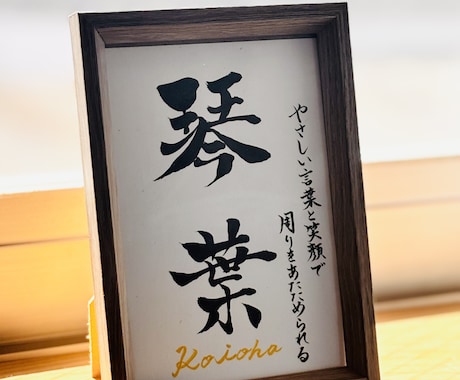 琴葉
やさしい言葉と笑顔で
周りをあたためられる
Koioha